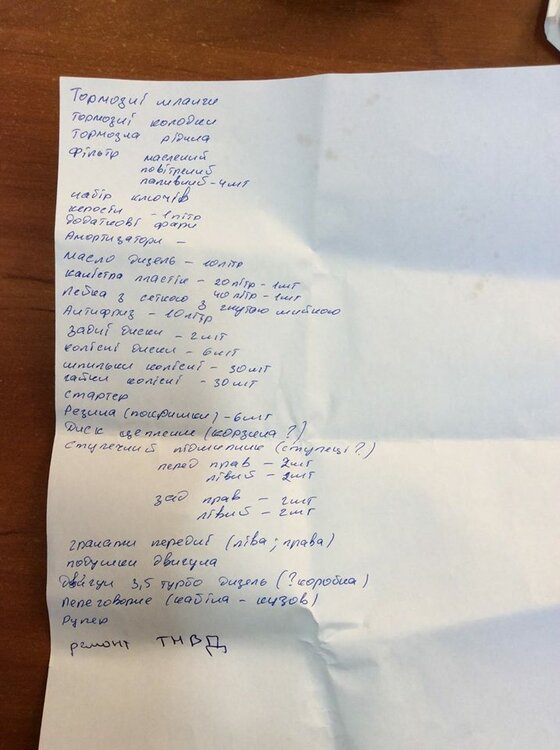 Тормозні шланги
Тормозні колодки
Тормозна рідина
Фільтр маслений
повітряний
паливний - 4шт
набір ключів
керосин - 1літр
додаткові фари
Амортизатори -
масло дизель - 10літр
каністра пластік - 20літр - 1шт
40літр - 1шт
Лейка з сеткою з гнутою шийкою
Антифриз - 10літр
задні диски - 2шт
колісні диски - 6шт
шпильки колісні - 30шт
гайки колісні - 30шт
Стартер
Резина (покришки) - 6шт
Диск щеплення (корзина?)
Ступечний підшипник (ступеці?)
перед прав - 2шт
лівий - 2шт
зад прав - 2шт
лівий - 2шт
гранати передні (ліва; права)
подушки двигуна
Двігун 3,5 турбо дизель (?коробка)
переговорне (кабіна - кузов)
Рупер
ремонт ТНВД